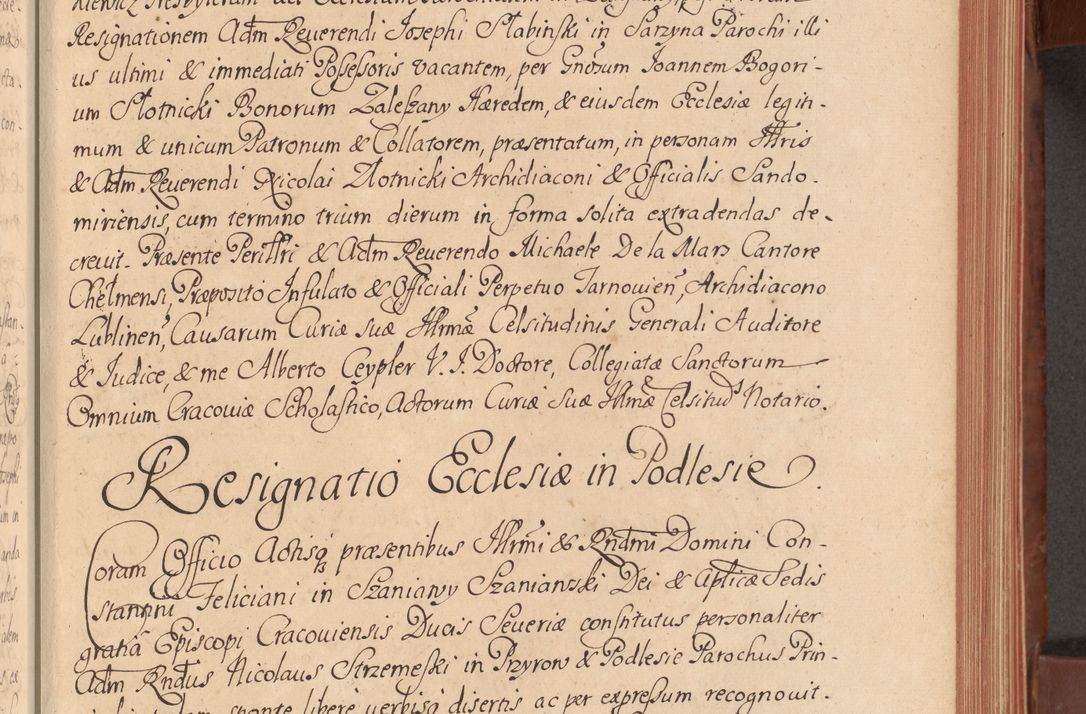 Resignationem Adm Reverendi Josephi Słabiński in Sarzyna Parochi illi
us ultimi & immediati Possessoris vacantem, per Gnosum Joannem Bogori-
um Słotnicki Bonorum Zaleszany Hæredem, & eiusdem Ecclesiæ legiti-
mum & unicum Patronum & Collatorem, præsentatum, in personam Illtris
& Adm Reverendi Nicolai Złotnicki Archidiaconi & Officialis Sando-
miriensis, cum termino trium dierum in forma solita extradendas de-
crevit. Præsente Perilltri & Adm Reverendo Michaele De la Mars Cantore
Chełmensi, Præposito Infulato & Officiali Perpetuo Tarnovien, Archidiacono
Lublinen, Causarum Curiæ suæ Illrmæ Celsitudinis Generali Auditore
& Iudice, & me Alberto Ceypler V. I. Doctore, Collegiatæ Sanctorum
Omnium Cracoviæ Scholastico, Actorum Curiæ Suæ Illmæ Celsituds Notario.
Resignatio Ecclesiæ in Podlesie.
Coram Officio Actisq præsentibus Illrmi & Rndmi Domini Con-
stantini Feliciani in Szaniawy Szaniawski Dei & Aplicæ Sedis
gratia Episcopi Cracoviensis Ducis Severiæ constitutus personaliter
Adm Rndus Nicolaus Strzemeski in Przyrow & Podlesie Parochus Prin-
sponte libere verbisq disertis ac per expressum recognovit.